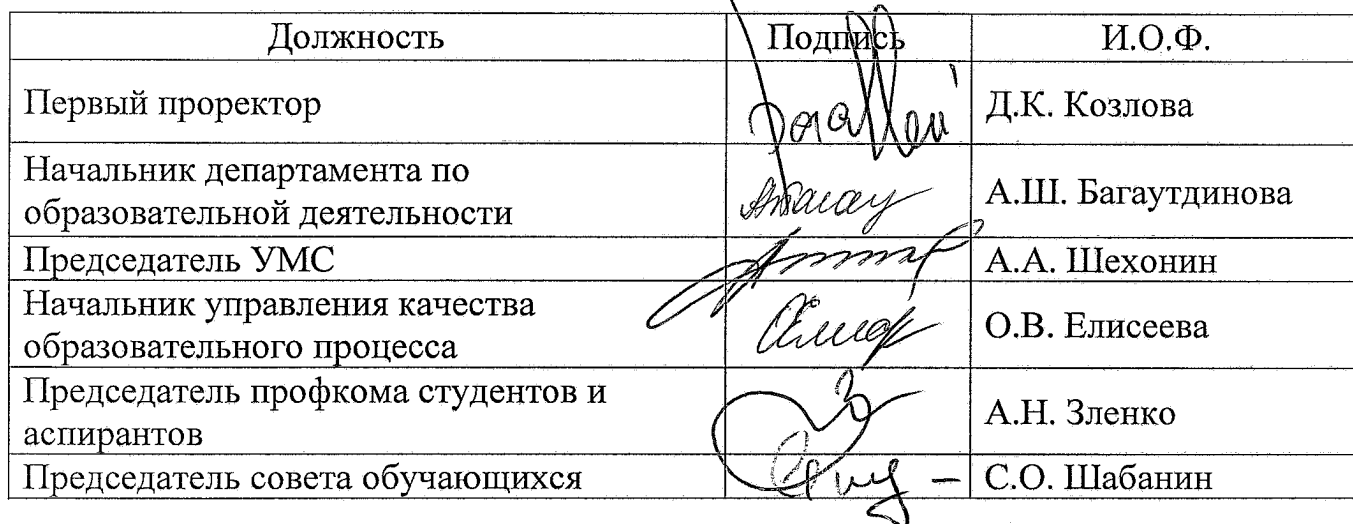 Должность Подпись И.О.Ф.
Первый проректор Д.К. Козлова
Начальник департамента по
образовательной деятельности А.Ш. Багаутдинова
Председатель УМС А.А. Шехонин
Начальник управления качества
образовательного процесса О.В. Елисеева
Председатель профкома студентов и
аспирантов А.Н. Зленко
Председатель совета обучающихся С.О. Шабанин